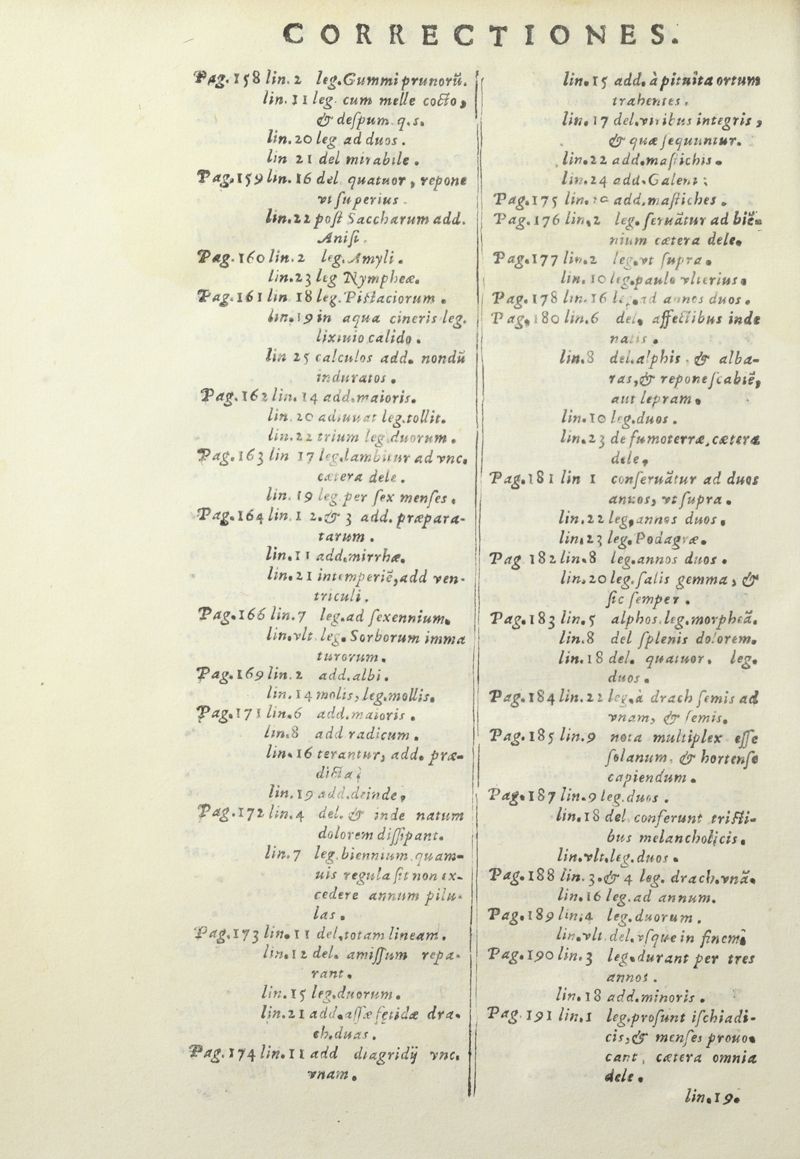 CORRECTIONES.
Pag. 158 lin. 2 leg. Gummi prunorũ.
lin. 11 leg. cum melle cocto,
& despum. q. s.
lin. 20 leg ad duos.
lin 21 del mirabile.
Pag. 159 lin. 16 del quatuor, repone
vt superius.
lin. 22 post Saccharum add.
Anisi.
Pag. 160 lin. 2 leg. Amyli.
lin. 23 leg Nympheæ.
Pag. 161 lin 18 leg. Pistaciorum.
lin. 19 in aqua cineris leg.
lixiuio calido.
lin 25 calculos add. nondũ
induratos.
Pag. 162 lin. 14 add. maioris.
lin. 20 adiuuat leg. tollit.
lin. 22 trium leg. duorum.
Pag. 163 lin 17 leg. lambitur ad vnc.
cætera dele.
lin. 19 leg per sex menses.
Pag. 164 lin. 1 2. & 3 add. præpara-
tarum.
lin. 11 add. mirrhæ.
lin. 21 intemperiẽ, add ven-
triculi.
Pag. 166 lin. 7 leg. ad sexennium.
lin. vlt. leg. Sorborum imma
turorum.
Pag. 169 lin. 2 add. albi.
lin. 14 molis, leg. mollis.
Pag. 171 lin. 6 add. maioris.
lin. 8 add radicum.
lin. 16 terantur, add. præ-
dicta;
lin. 19 add. deinde,
Pag. 172 lin. 4 del. & inde natum
dolorem dissipant.
lin. 7 leg. biennium quam-
uis regula sit non ex-
cedere annum pilu-
las.
Pag. 173 lin. 11 del. totam lineam.
lin. 12 del. amissum repa-
rant.
lin. 15 leg. duorum.
lin. 21 add. assæ fetidæ dra-
ch. duas.
Pag. 174 lin. 11 add diagridij vnc.
vnam.
lin. 15 add. à pituita ortum
trahentes.
lin. 17 del. viribus integris,
& quæ sequuntur.
lin. 22 add. mastichis.
lin. 24 add. Galeni;
Pag. 175 lin. add. mastiches.
Pag. 176 lin. 2 leg. seruãtur ad biẽ-
nium cætera dele.
Pag. 177 lin. 2 leg. vt supra.
lin. 10 leg. paulo vlterius.
Pag. 178 lin. 16 leg. ad annos duos.
Pag. 180 lin. 6 del. affectibus inde
natis.
lin. 8 del. alphis & alba-
ras, & repone scabiẽ,
aut lepram.
lin. 10 leg. duos.
lin. 23 de fumoterræ, cætera
dele,
Pag. 181 lin 1 conseruãtur ad duos
annos, vt supra.
lin. 22 leg. annos duos.
lin. 23 leg. Podagræ.
Pag 182 lin. 8 leg. annos duos.
lin. 20 leg. salis gemmæ, &
sic semper.
Pag. 183 lin. 5 alphos. leg. morpheã.
lin. 8 del splenis dolorem.
lin. 18 del. quatuor. leg.
duos.
Pag. 184 lin. 22 leg. à drach semis ad
vnam, & semis.
Pag. 185 lin. 9 nota multiplex esse
solanum, & hortense
capiendum.
Pag. 187 lin. 9 leg. duos.
lin. 18 del conferunt tristi-
bus melancholicis.
lin. vlt. leg. duos.
Pag. 188 lin. 3. & 4 leg. drach. vnã.
lin. 16 leg. ad annum.
Pag. 189 lin. 4 leg. duorum.
lin. vlt. del. vsque in finem.
Pag. 190 lin. 3 leg. durant per tres
annos.
lin. 18 add. minoris.
Pag. 191 lin. 1 leg. prosunt ischiadi-
cis, & menses prouo-
cant, cætera omnia
dele.
lin. 19.